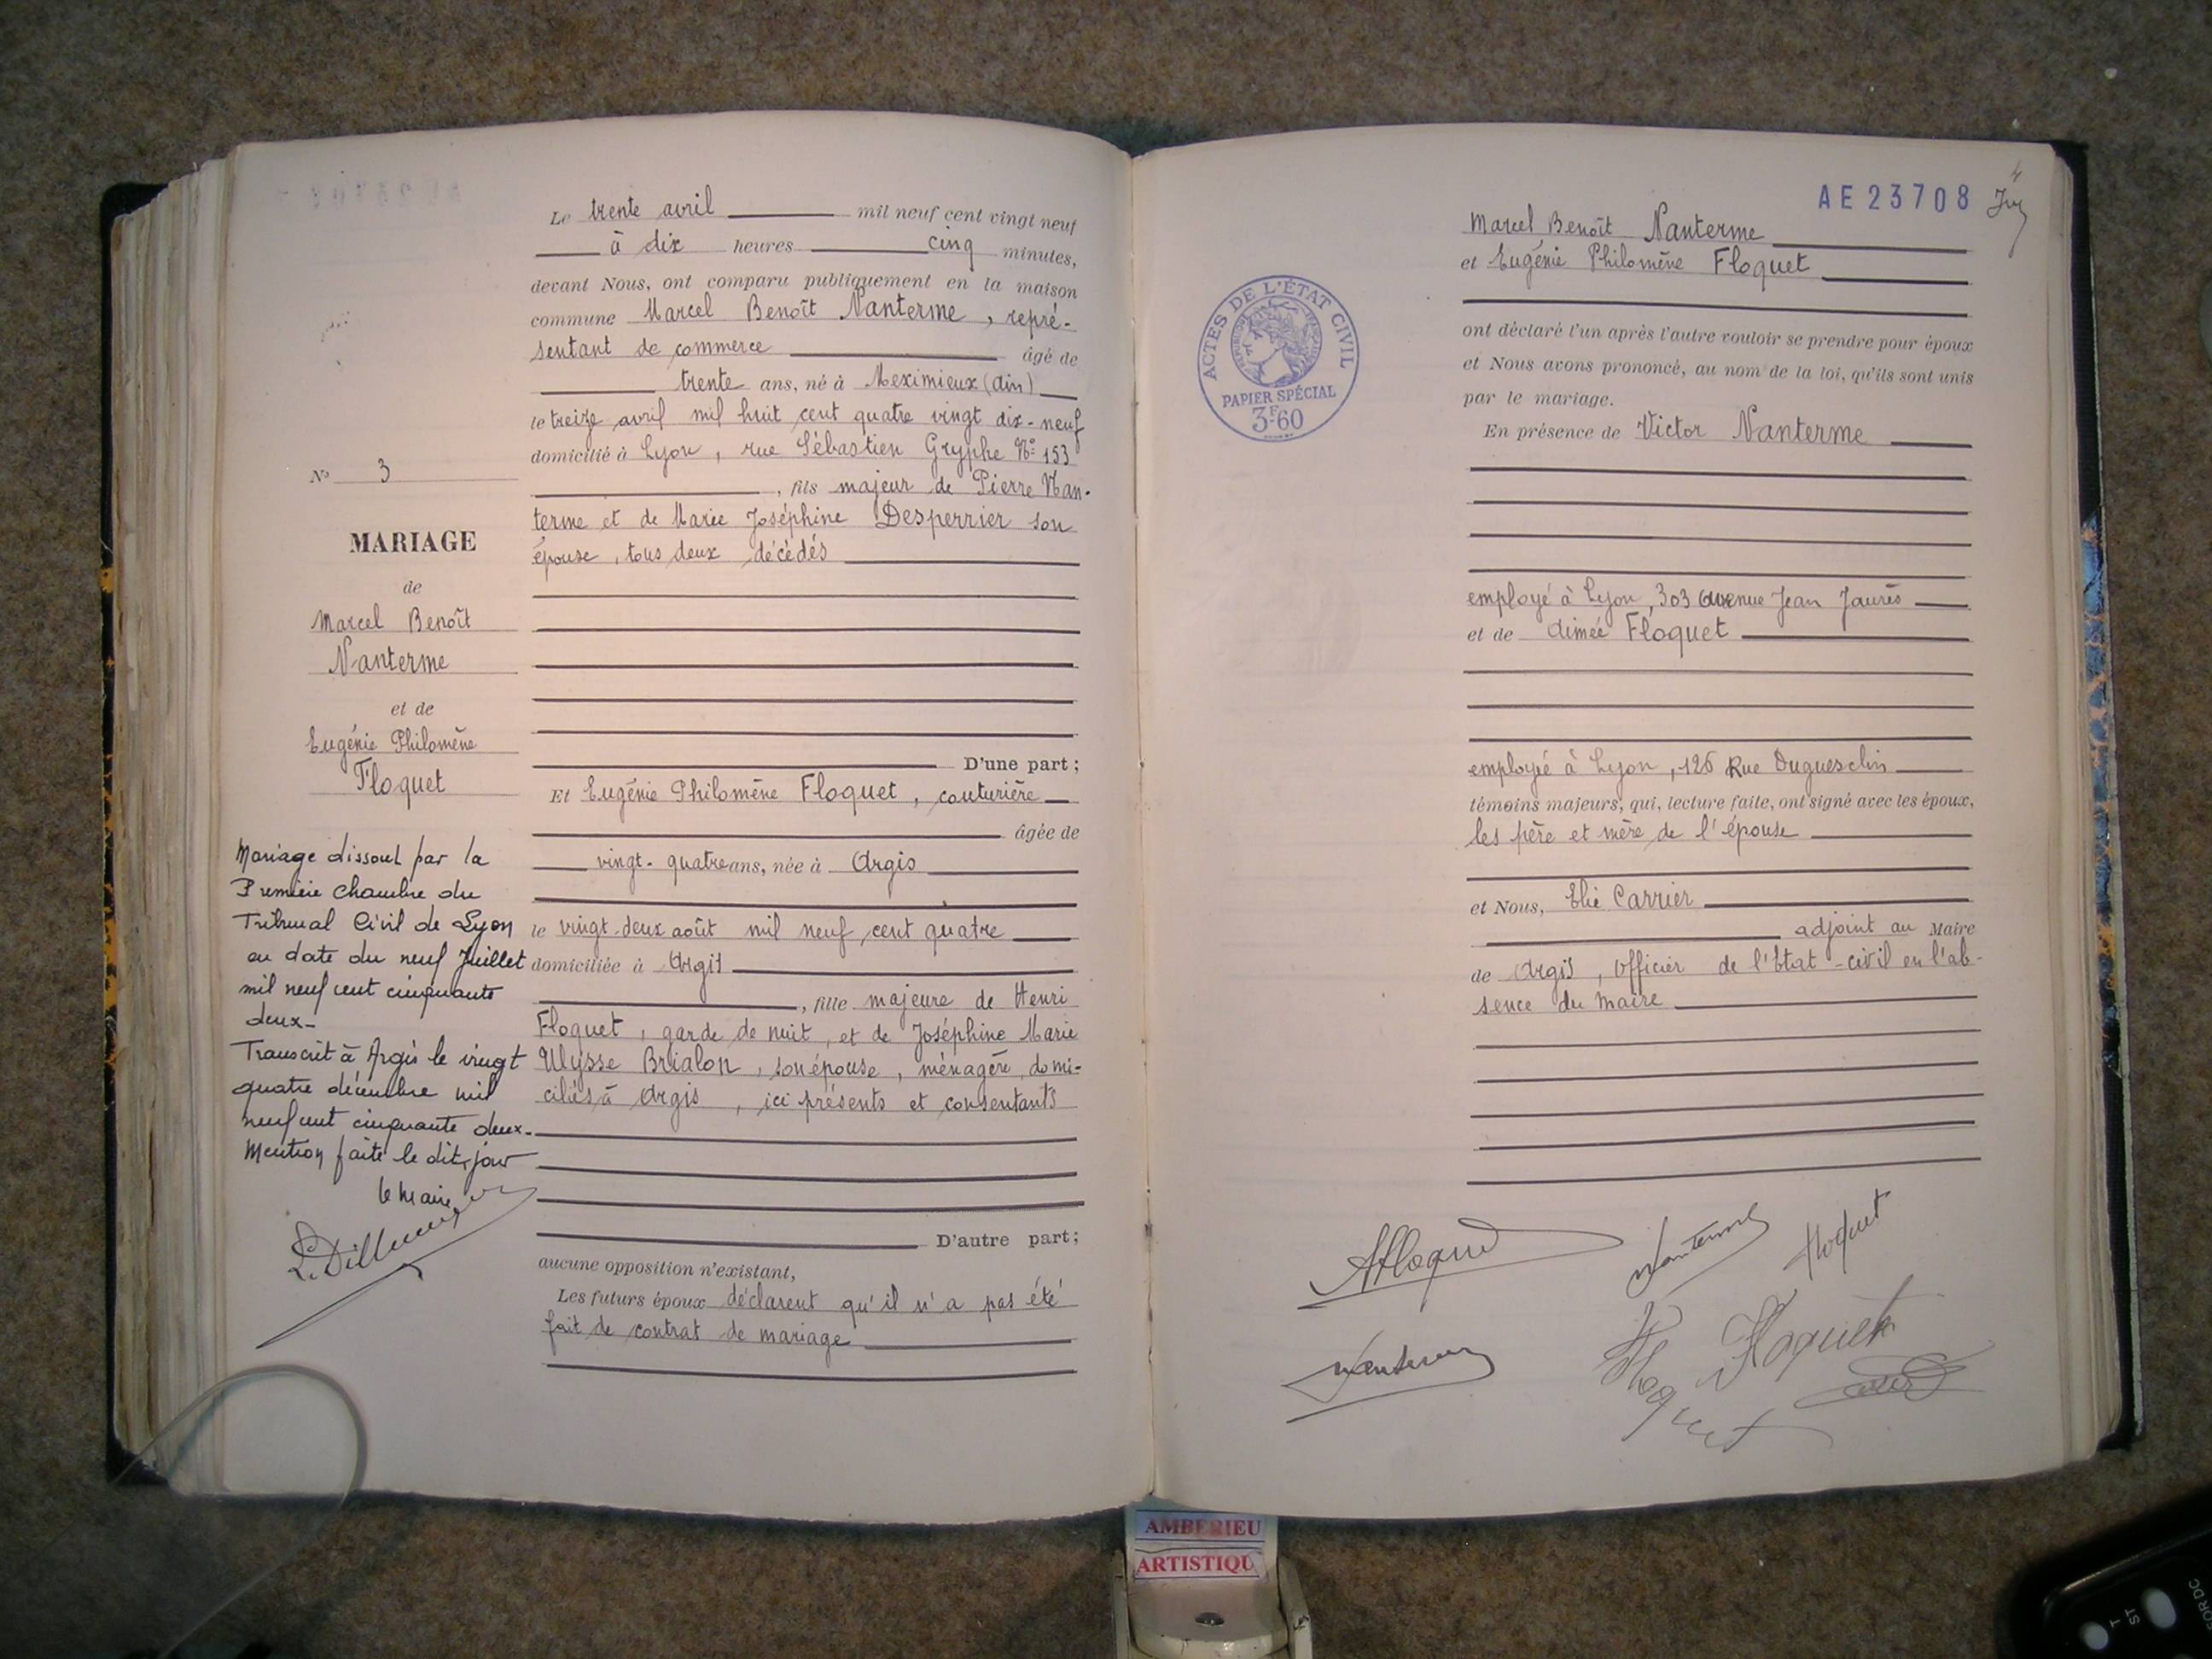 Le trente avril mil neuf cent vingt neuf
à dix heures cinq minutes,
devant Nous, ont comparu publiquement en la maison
commune Marcel Benoît Nanterme, repré-
sentant de commerce âgé de
trente ans, né à Meximieux (Ain)
le treize avril mil huit cent quatre vingt dix-neuf
domicilié à Lyon, rue Sébastien Gryphe N° 153
, fils majeur de Pierre Nan-
terme et de Marie Joséphine Desperrier son
épouse, tous deux décédés
D'une part;
Et Eugénie Philomène Floquet, couturière
âgée de
vingt-quatre ans, née à Argis
le vingt-deux août mil neuf cent quatre
domiciliée à Argis
, fille majeure de Henri
Floquet, garde de nuit, et de Joséphine Marie
Ulysse Brialon, son épouse, ménagère, domi-
ciliés à Argis, ici présents et consentants
D'autre part;
aucune opposition n'existant,
Les futurs époux déclarent qu'il n'a pas été
fait de contrat de mariage
N° 3
MARIAGE
de
Marcel Benoît
Nanterme
et de
Eugénie Philomène
Floquet
Mariage dissout par la
Première chambre du
Tribunal Civil de Lyon
en date du neuf Juillet
mil neuf cent cinquante
deux-
Transcrit à Argis le vingt
quatre décembre mil
neuf cent cinquante deux.
Mention faite le dit jour
le Maire
AE 23708
4
ACTES DE L'ÉTAT CIVIL
RÉPUBLIQUE FRANÇAISE
PAPIER SPÉCIAL
3F.60
Marcel Benoît Nanterme
et Eugénie Philomène Floquet
ont déclaré l'un après l'autre vouloir se prendre pour époux
et Nous avons prononcé, au nom de la loi, qu'ils sont unis
par le mariage.
En présence de Victor Nanterme
employé à Lyon, 303 avenue Jean Jaurès
et de Aimée Floquet
employé à Lyon, 126 Rue Duguesclin
témoins majeurs, qui, lecture faite, ont signé avec les époux,
les père et mère de l'épouse
et Nous, Elie Carrier
adjoint au Maire
de Argis, officier de l'Etat-civil en l'ab-
sence du maire
AFloquet
Nanterme
Floquet
Nanterme
Floquet
Floquet
AMBERIEU
ARTISTIQU
T
ST